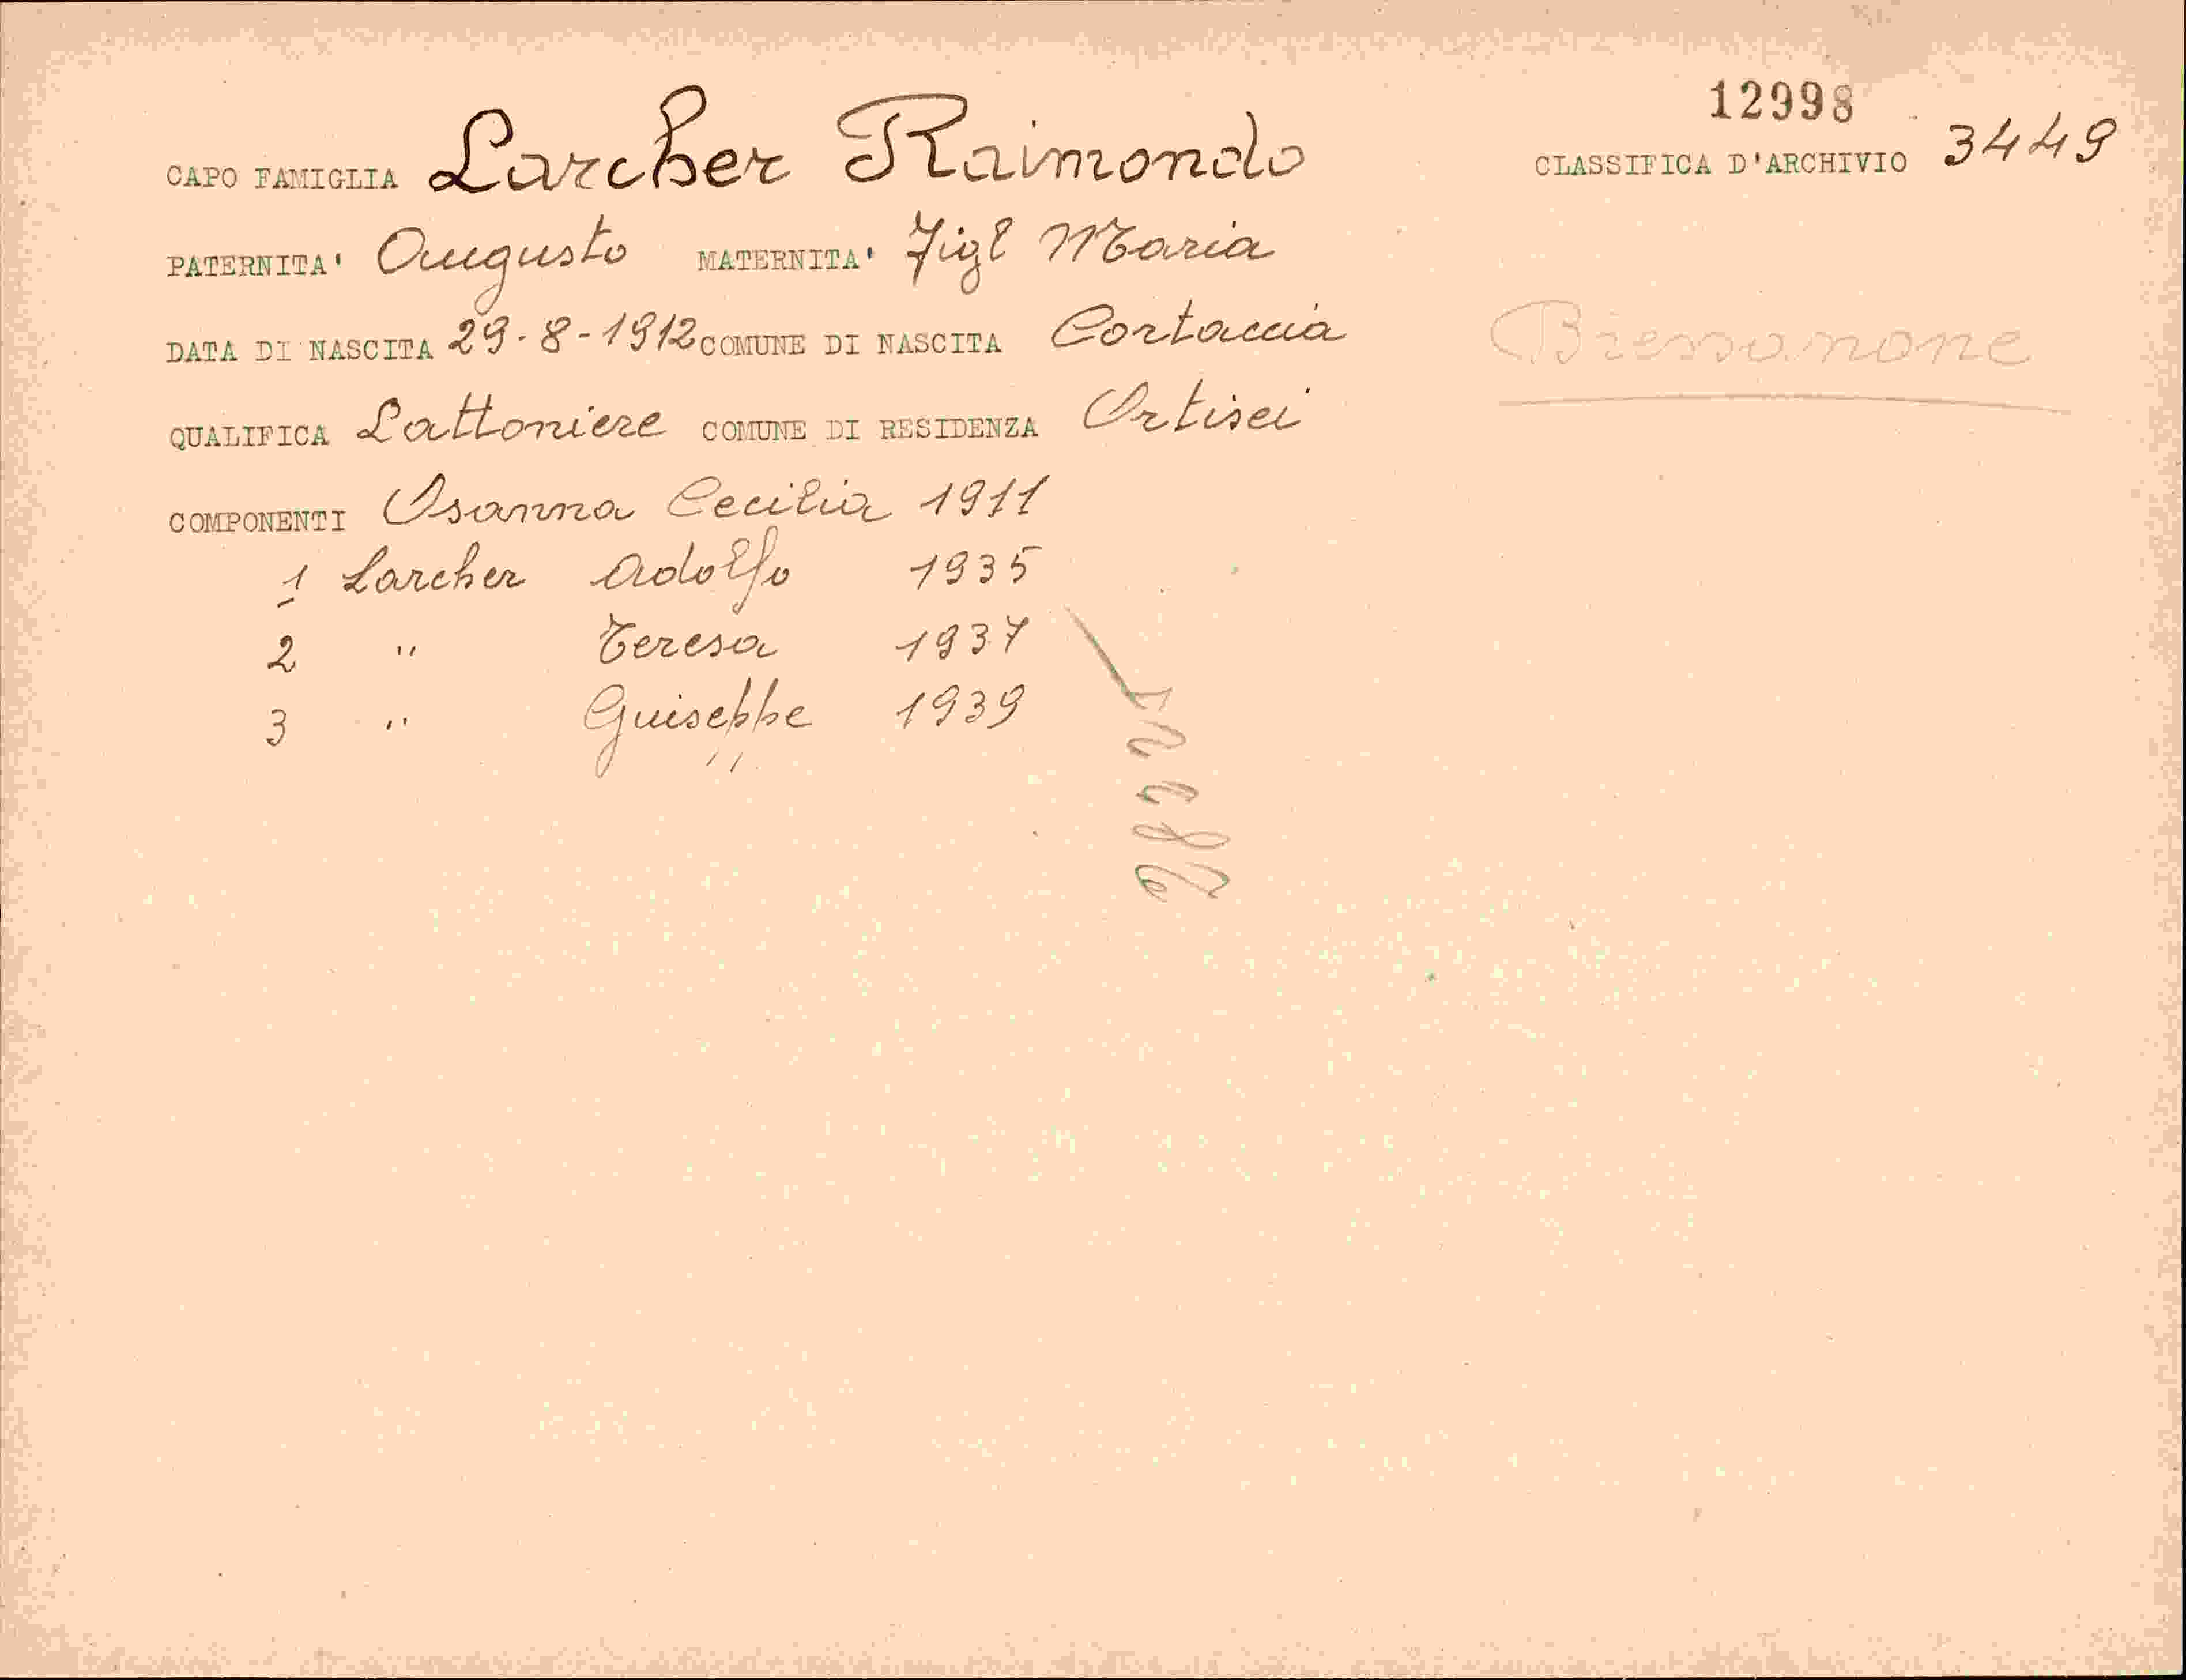 12998
CAPO FAMIGLIA Larcher Raimondo CLASSIFICA D'ARCHIVIO 3449
PATERNITA' Augusto MATERNITA' Figl Maria
DATA DI NASCITA 29-8-1912 COMUNE DI NASCITA Cortaccia
Bressanone
QUALIFICA Lattoniere COMUNE DI RESIDENZA Ortisei
COMPONENTI Osanna Cecilia 1911
1 Larcher Adolfo 1935
2 " Teresa 1937
3 " Guiseppe 1939